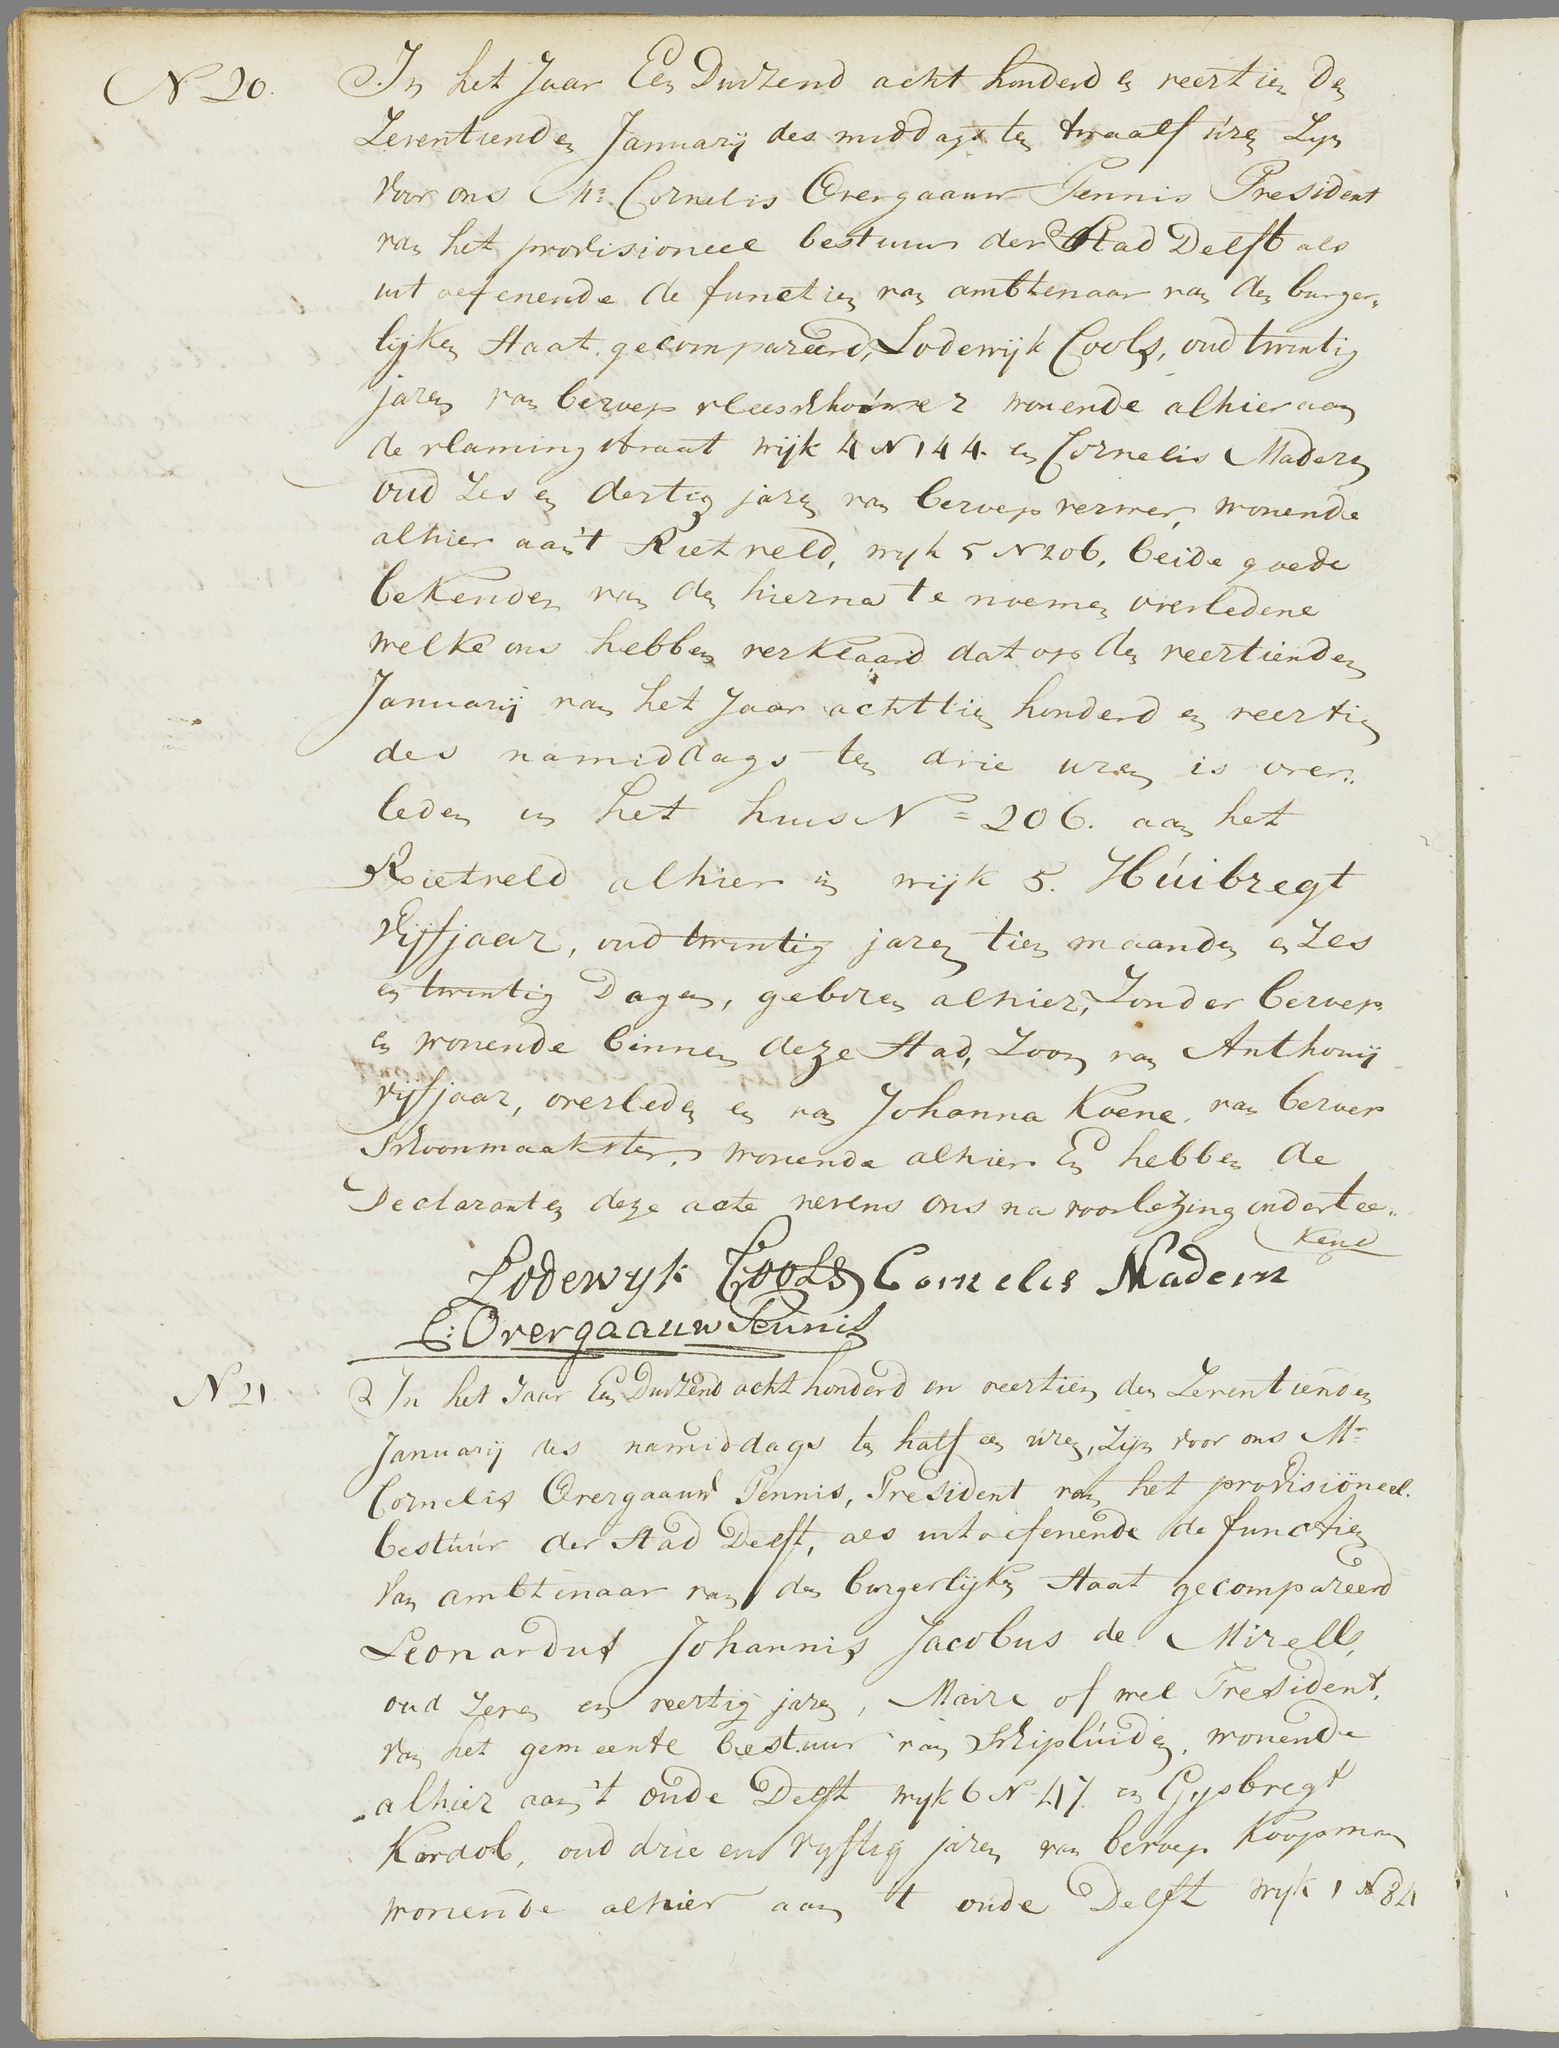 N 20.
In het Jaar Een Duizend acht honderd en veertien den
Zeventienden Januarij des middags ten twaalf uren Zijn
Voor ons Mr. Cornelis Overgaauw Pennis President
van het provisioneel bestuur der Stad Delft als
uitoefenende de functien van ambtenaar van den burger„
lijken Staat gecompareerd, Lodewijk Cools, oud twintig
jaren van beroep vleeschhouwer wonende alhier aan
de vlamingstraat wijk 4 N 144. en Cornelis Maderen
oud Zes en dertig jaren van beroep verwer, wonende
alhier aan 't Rietveld, wijk 5 N 206, beide goede
bekenden van den hierna te noemen overledene
welke ons hebben verklaard dat op den veertienden
Januarij van het Jaar achttien honderd en veertien
des namiddags ten drie uren is over„
leden in het huis N = 206. aan het
Rietveld alhier in wijk 5. Húibregt
Vijfjaar, oud twintig jaren tien maanden en Zes
en twintig Dagen, geboren alhier, Zonder beroep
en wonende binnen deze Stad, Zoon van Anthonij
vijfjaar, overleden en van Johanna Koene, van beroep
Schoonmaakster, wonende alhier En hebben de
Declaranten deze acte nevens ons na voorlezing ondertee„
kend
Lodewyk Cools Cornelis Madern
C: Overgaauw Pennis
N 21.
In het Jaar Een Duizend acht honderd en veertien den Zeventienden
Januarij des namiddags ten half een uren, Zijn voor ons Mr.
Cornelis Overgaauw Pennis, President van het provisiöneel
bestúúr der Stad Delft, als uitoefenende de functien
Van ambtenaar van den burgerlijken Staat gecompareerd
Leonardus Johannis Jacobus de Mirell,
oud Zeven en veertig jaren, Maire of wel President,
van het gemeente bestuur van Schiplúiden, wonende
alhier aan 't oude Delft wyk 6 N 47. en Gysbregt
Kordol, oud drie en vyftig jaren van beroep Koopman
wonende alhier aan 't oude Delft wyk 1 N 84